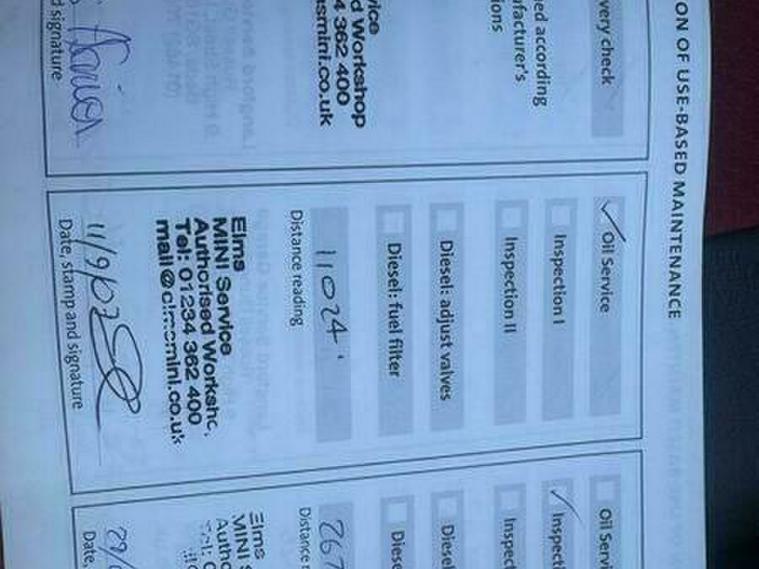 ON OF USE-BASED MAINTENANCE
very check
ed according
ufacturer's
ions
vice
d Workshop
4 362 400
esmini.co.uk
d signature
Oil Service
Inspection I
Inspection II
Diesel: adjust valves
Diesel: fuel filter
11024
Distance reading
Elms
MINI Service
Authorised Worksho
Tel: 01234 362 400
mail@elmsmini.co.uk
11/9/07
Date, stamp and signature
Oil Servi
Inspecti
Inspect
Diesel
Diese
267
Distance r
Elms
MINI S
Autho
Date,